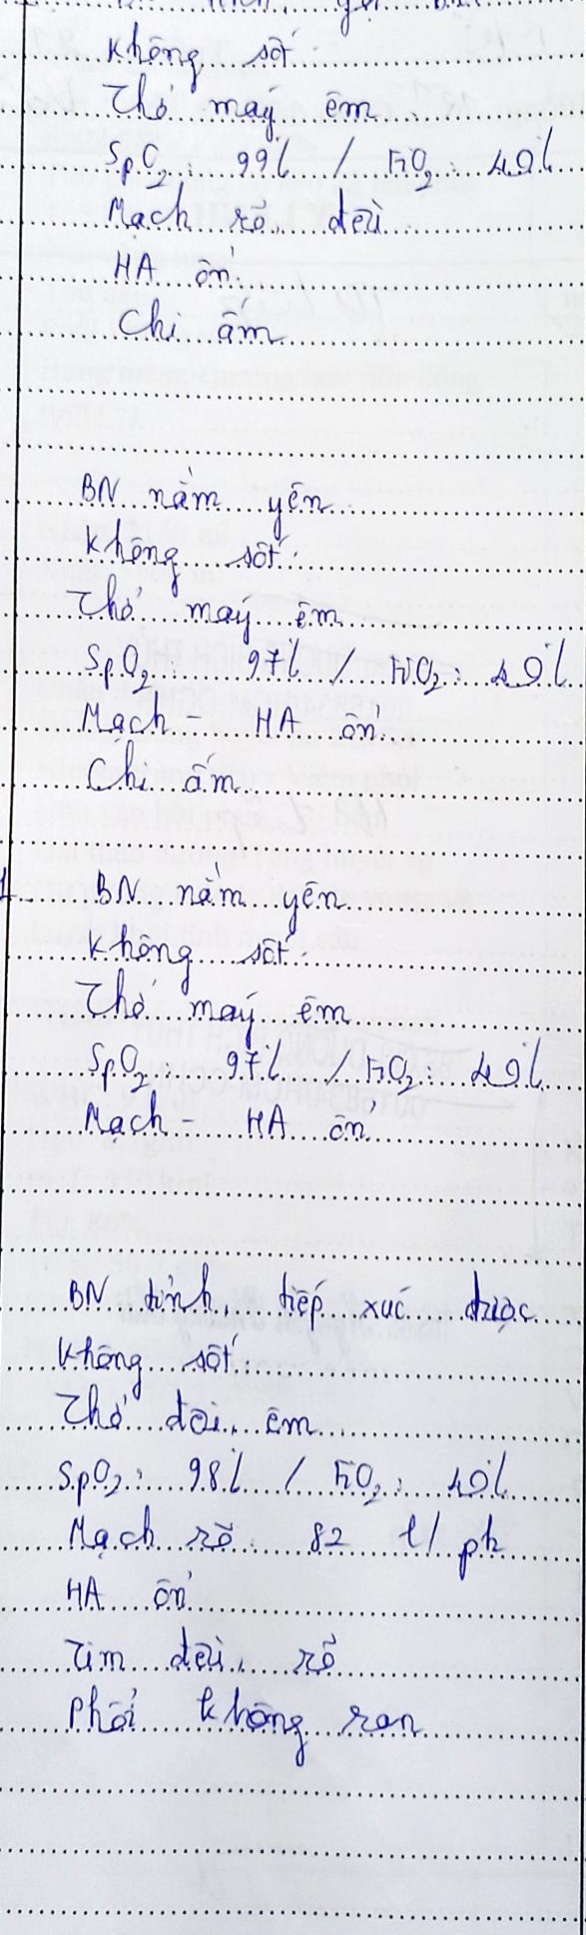 Không sốt
Thở máy êm
SpO2: 99% / FiO2: 40%
Mạch rõ, đều
HA ổn
Chi ấm
BN nằm yên
Không sốt
Thở máy êm
SpO2: 97% / FiO2: 40%
Mạch - HA ổn
Chi ấm
BN nằm yên
Không sốt
Thở máy êm
SpO2: 97% / FiO2: 40%
Mạch - HA ổn
BN tỉnh, tiếp xúc được
Không sốt
Thở đều, êm
SpO2: 98% / FiO2: 40%
Mạch rõ 82 l/ph
HA ổn
Tim đều, rõ
Phổi không ran